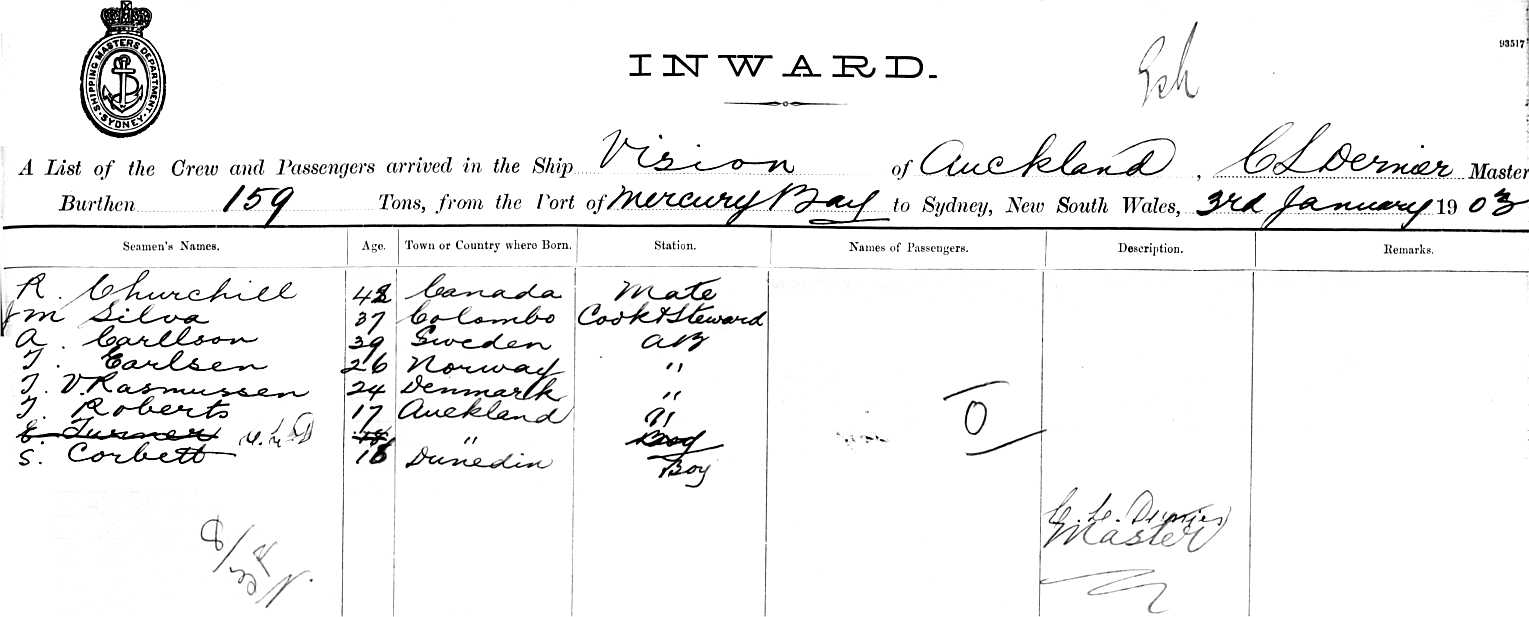 SHIPPING MASTERS DEPARTMENT.
SYDNEY
93517
INWARD.
A List of the Crew and Passengers arrived in the Ship Vision of Auckland, C L Dernier Master
Burthen 159 Tons, from the Port of Mercury Bay to Sydney, New South Wales, 3rd January 1903
Seamen's Names. Age. Town or Country where Born. Station. Names of Passengers. Description. Remarks.
R. Churchill 42 Canada Mate
J M Silva 37 Colombo Cook & Steward
A. Carllson 39 Sweden AB
T. Earlsen 26 Norway "
T. V. Rasmussen 24 Denmark "
T. Roberts 17 Auckland "
E. Turner 18 " Boy
S. Corbett 18 Dunedin Boy
O
C. L. Dernier
Master